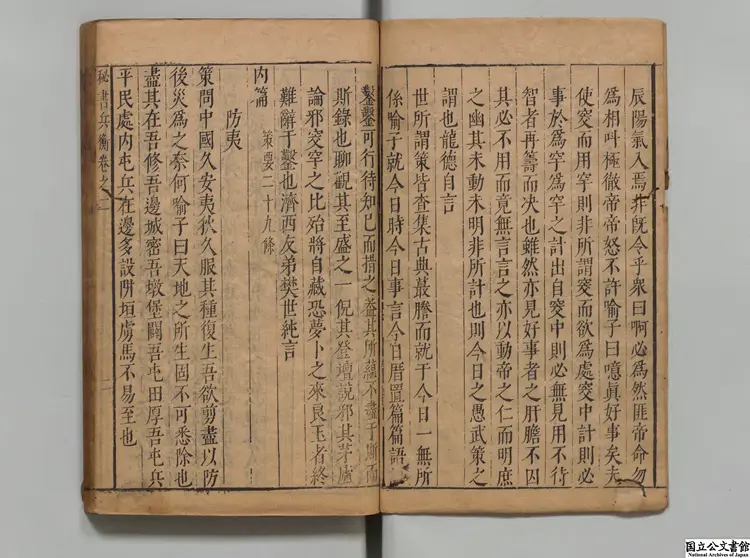 辰陽氣入焉非既令乎衆曰啊必爲然匪帝命勿
爲相叫極徹帝帝怒不許喻子曰噫眞好事矣夫
使穾而用罕則非所謂穾而欲爲處穾中計則必
事於爲罕爲罕之計出自穾中則必無見用不待
智者再籌而决也雖然亦見好事者之肝膽不囚
其必不用而竟無言言之亦以動帝之仁而明庶
之幽其未動未明非所計也則今日之愚武策之
謂也龍德自言
世所謂策皆查集古典蕞謄而就于今日一無所
係喻子就今日時今日事言今日厝置篇篇語
鑿鑿可行待知巳而措之葢其所蘊不盡于斯而
斯錄也聊覩其至盛之一倪其登壇說邪其茅廬
論邪穾罕之比殆將自藏恐夢卜之來良玉者終
難辭于鑿也濟西友弟樊世純言
內篇
策要二十九條
防夷
策問中國久安夷狄久服其種復生吾欲剪盡以防
後災爲之柰何喻子曰天地之所生固不可悉除也
盡其在吾修吾邊城密吾墩堡闢吾屯田厚吾屯兵
平民處內屯兵在邊多設阱垣虜馬不易至也
秘書兵衡卷之二
國立公文書館
National Archives of Japan